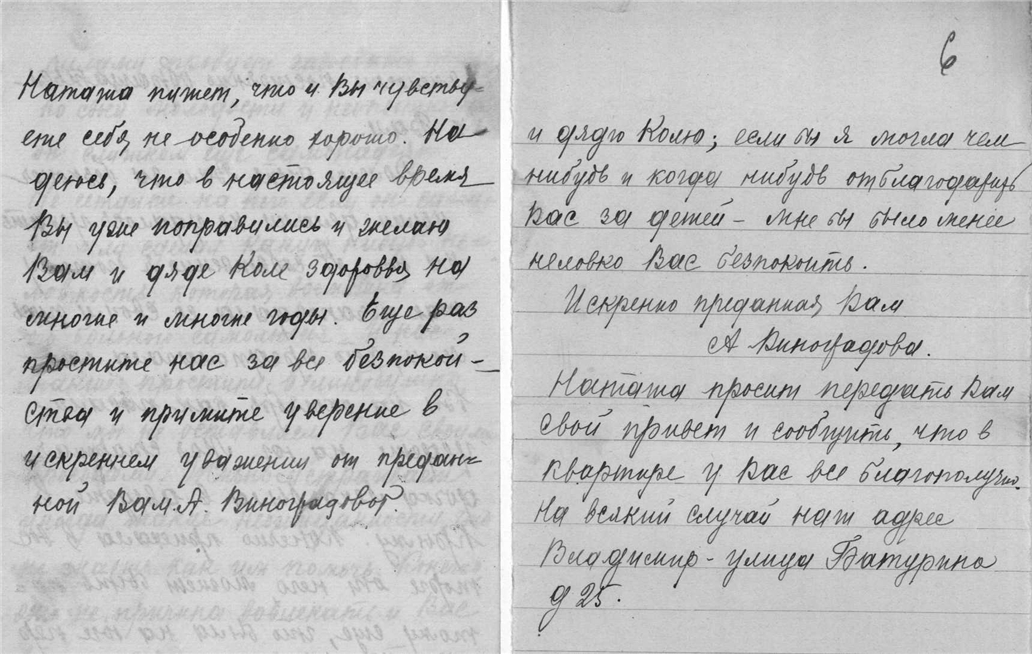 Наташа пишет, что и Вы чувству-
ете себя не особенно хорошо. На
деюсь, что в настоящее время
Вы уже поправились и желаю
Вам и дяде Коле здоровья на
многие и многие годы. Еще раз
простите нас за все безпокой-
ства и примите уверение в
искреннем уважении от предан-
ной Вам А. Виноградовой.
6
и дядю Колю; если бы я могла чем
нибудь и когда нибудь отблагодарить
Вас за детей - мне бы было менее
неловко Вас безпокоить.
Искренно преданная Вам
А Виноградова.
Наташа просит передать Вам
свой привет и сообщить, что в
квартире у Вас все благополучно.
На всякий случай наш адрес
Владимир - улица Батурина
д 25.